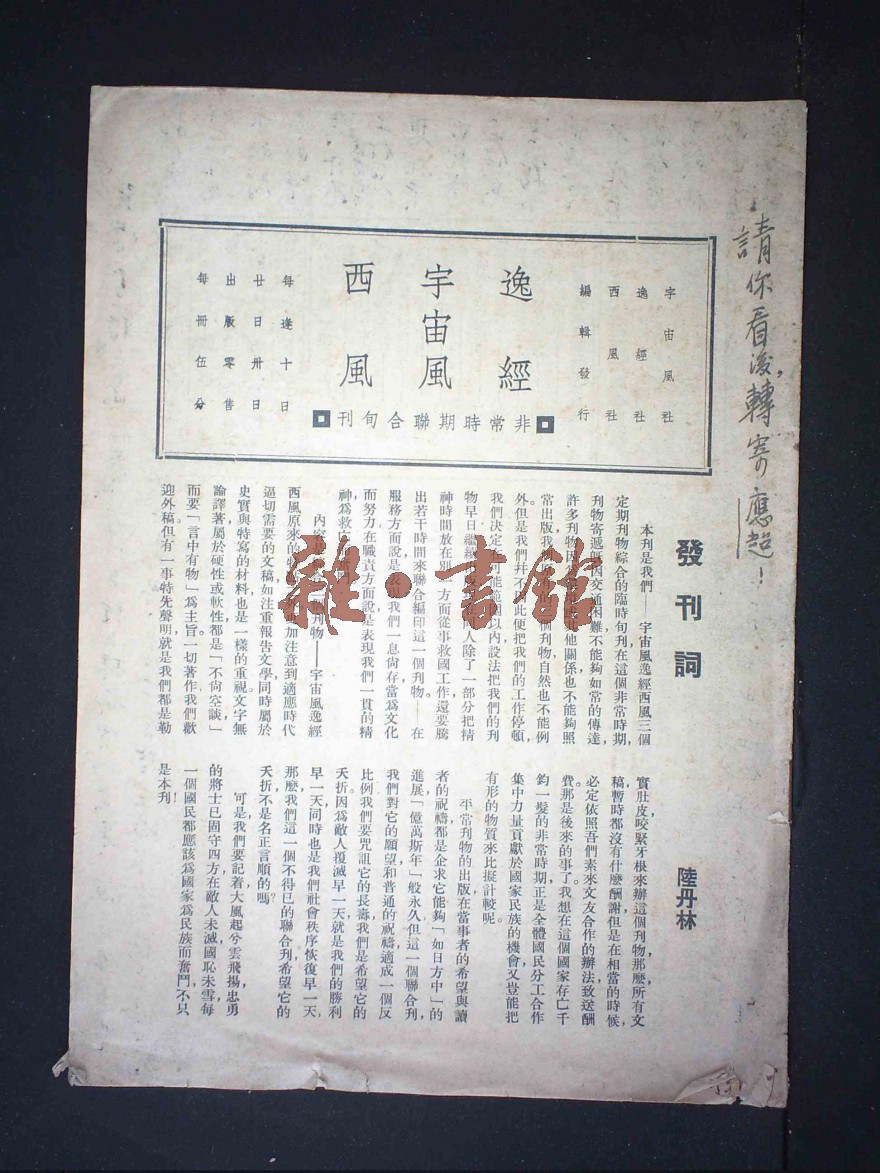 請你看後,轉寄應超!
宇宙風社
逸經社
西風社
編輯發行
逸經
宇宙風
西風
非常時期聯合旬刊
每逢十日
廿日卅日
出版零售
每冊伍分
發刊詞
陸丹林
本刊是我們——宇宙風逸經西風三個
定期刊物綜合的臨時旬刊在這個非常時期,
刊物寄遞既因交通困難不能夠如常的傳達,
許多刊物因
其他關係也不能夠照
常出版我
個刊物,自然也不能例
外。但是我們并不
此便把我們的工作停頓,
我們決定在可能範圍以內設法把我們的刊
物早日繼續
人除了一部分把精
神時間放在別
方面從事救國工作,還要騰
出若干時間來聯合編印這一個刊物——在
服務方面說是表現我們一息尙存當爲文化
而努力在職責方面說是表現我們一貫的精
神爲救
內容是
刊物——宇宙風逸經
西風原來的
加注意到適應時代
逼切需要的文稿如注重報告文學同時屬於
史實與特寫的材料也是一樣的重視文字無
論譯著屬於硬性或軟性都是「不尙空談」
而要「言中有物」爲主旨。一切著作我們歡
迎外稿。但有一事特先聲明,就是我們都是勒
實肚皮,咬緊牙根來辦這個刊物,那麽所有文
稿,暫時都沒有什麽酬謝但是在相當的時候,
必定依照吾們素來文友合作的辦法致送酬
費。那是後來的事了。我想在這個國家存亡千
鈞一髮的非常時期正是全體國民分工合作
集中力量貢獻於國家民族的機會又豈能把
有形的物質來比擬計較呢。
平常刊物的出版在當事者的希望與讀
者的祝禱都是企求它能夠「如日方中」的
進展,「億萬斯年」般永久。但這一個聯合刊,
我們對它的願望和普通的祝禱,適成一個反
比例我們要咒詛它的長壽我們是希望它的
夭折。因爲敵人覆滅早一天就是我們的勝利
早一天,同時也是我們社會秩序恢復早一天,
那麽我們這一個不得已的聯合刊希望它的
夭折,不是名正言順的嗎?
可是,我們要記着大風起兮雲飛揚忠勇
的將士已固守四方在敵人未滅,國恥未雪,每
一個國民都應該爲國家爲民族而奮鬥,不只
是本刊!
雜·書館